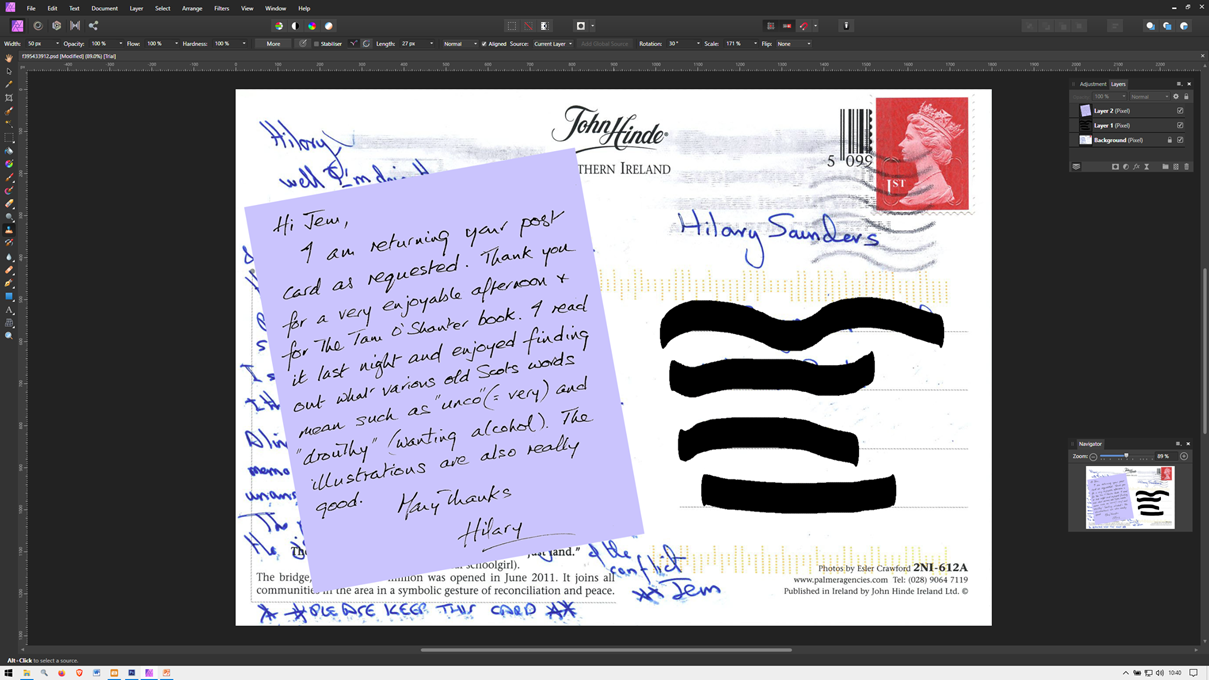 File Edit Text Document Layer Select Arrange Filters View Window Help
Width: 50 px Opacity: 100 % Flow: 100 % Hardness: 100 % More Stabiliser Length: 27 px Normal Aligned Source: Current Layer Add Global Source Rotation: 30° Scale: 171 % Flip: None
f395433912.psd [Modified] (89.0%) [Trial]
Adjustment Layers
100 % Normal
Layer 2 (Pixel)
Layer 1 (Pixel)
Background (Pixel)
Navigator
Zoom: 89 %
John Hinde®
THERN IRELAND
5 099
1ST
Hilary
well I'm
Hilary Saunders
Hi Jem,
I am returning your post
card as requested. Thank you
for a very enjoyable afternoon +
for The Tam O'Shanter book. I read
it last night and enjoyed finding
out what various old Scots words
mean such as "unco" (= very) and
"drouthy" (wanting alcohol). The
illustrations are also really
good. Many Thanks
Hilary
land."
schoolgirl).
The bridge, million was opened in June 2011. It joins all
communities in the area in a symbolic gesture of reconciliation and peace.
& the
conflict
Jem
PLEASE KEEP THIS CARD
Photos by Esler Crawford 2NI-612A
www.palmeragencies.com Tel: (028) 9064 7119
Published in Ireland by John Hinde Ireland Ltd. ©
Alt-Click to select a source.
10:40